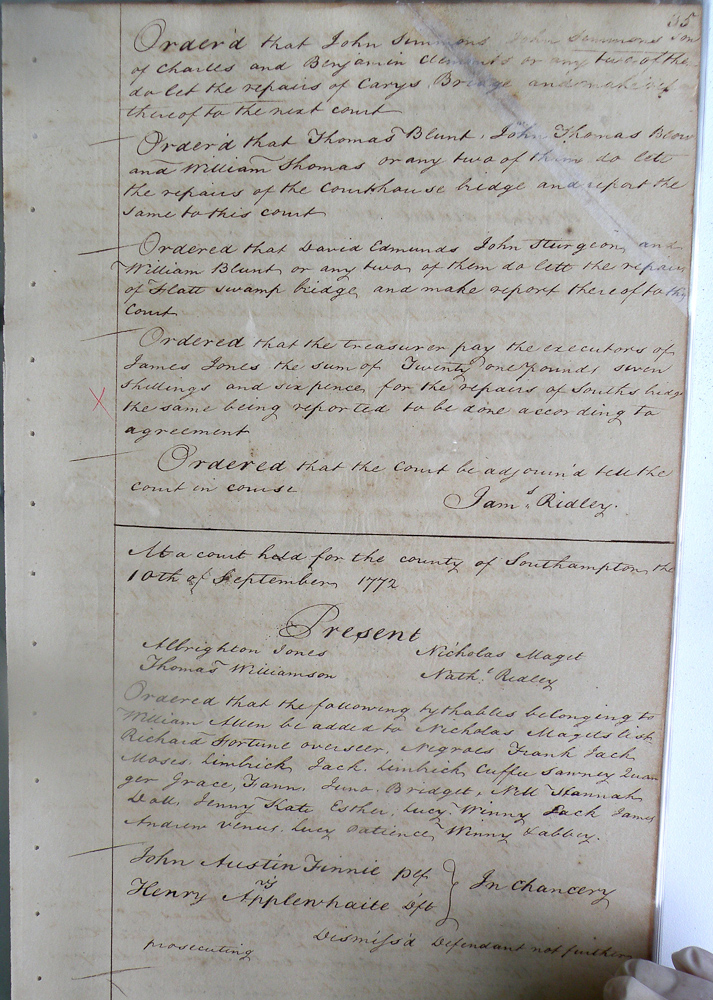 35
Order'd that John Simmons John Simmons Son
of Charles and Benjamin Clements or any two of the
do let the repairs of Carys Bridge and make
thereof to the next court
Order'd that Thomas Blunt, John Thomas Blow
and William Thomas or any two of them do lett
the repairs of the Courthouse bridge and report the
same to this court
Ordered that David Edmunds John Sturgeon and
William Blunt or any two of them do lett the repairs
of Flatt swamp bridge and make report thereof to the
Court
Ordered that the treasurer pay the executors of
James Jones the sum of Twenty one pounds seven
shillings and six pence for the repairs of Souths bridge
the same being reported to be done according to
agreement
Ordered that the Court be adjourn'd till the
court in course
Jams. Ridley.
At a court held for the county of Southampton the
10th of September 1772
Present
Albrighton Jones Nicholas Maget
Thomas Williamson Nathl. Ridley
Ordered that the following tythables belonging to
William Allen be added to Nicholas Magets list
Richard Fortune overseer, Negroes Frank Jack
Moses, Limbrick Jack, Limbrick Cuffu Sawney Quan
ger Grace, Fann, Juno, Bridget, Nell Hannah
Doll, Jenny Kate Esther, Lucy, Winny Jack James
Andrew Venus, Lucy Patience, Winny & abbey.
John Austin Finnie Plf
vs
Henry Applewhaite Dft
In Chancery
Dismiss'd Defendant not further
prosecuting